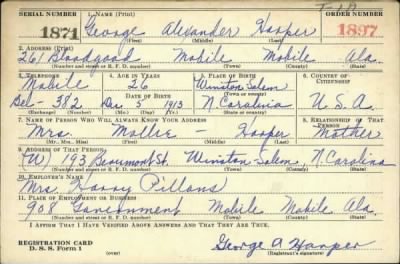 T-1A
SERIAL NUMBER 1. NAME (Print) ORDER NUMBER
1871 George Alexander Harper 1897
(First) (Middle) (Last)
2. ADDRESS (Print)
261 Bloodgood Mobile Mobile Ala.
(Number and street or R. F. D. number) (Town) (County) (State)
3. TELEPHONE 4. AGE IN YEARS 5. PLACE OF BIRTH 6. COUNTRY OF CITIZENSHIP
Mobile 26 Winston Salem
DATE OF BIRTH (Town or county)
Bel-382 Dec 5 1913 N. Carolina U.S.A.
(Exchange) (Number) (Mo.) (Day) (Yr.) (State or country)
7. NAME OF PERSON WHO WILL ALWAYS KNOW YOUR ADDRESS 8. RELATIONSHIP OF THAT PERSON
Mrs. Mollie - Harper Mother
(Mr., Mrs., Miss) (First) (Middle) (Last)
9. ADDRESS OF THAT PERSON
(W) 193 Beaumont St. Winston Salem, N. Carolina
(Number and street or R. F. D. number) (Town) (County) (State)
10. EMPLOYER'S NAME
Mrs. Harry Pillans
11. PLACE OF EMPLOYMENT OR BUSINESS
908 Government Mobile Mobile Ala.
(Number and street or R. F. D. number) (Town) (County) (State)
I AFFIRM THAT I HAVE VERIFIED ABOVE ANSWERS AND THAT THEY ARE TRUE.
REGISTRATION CARD
D. S. S. Form 1
George A Harper
(Registrant's signature)